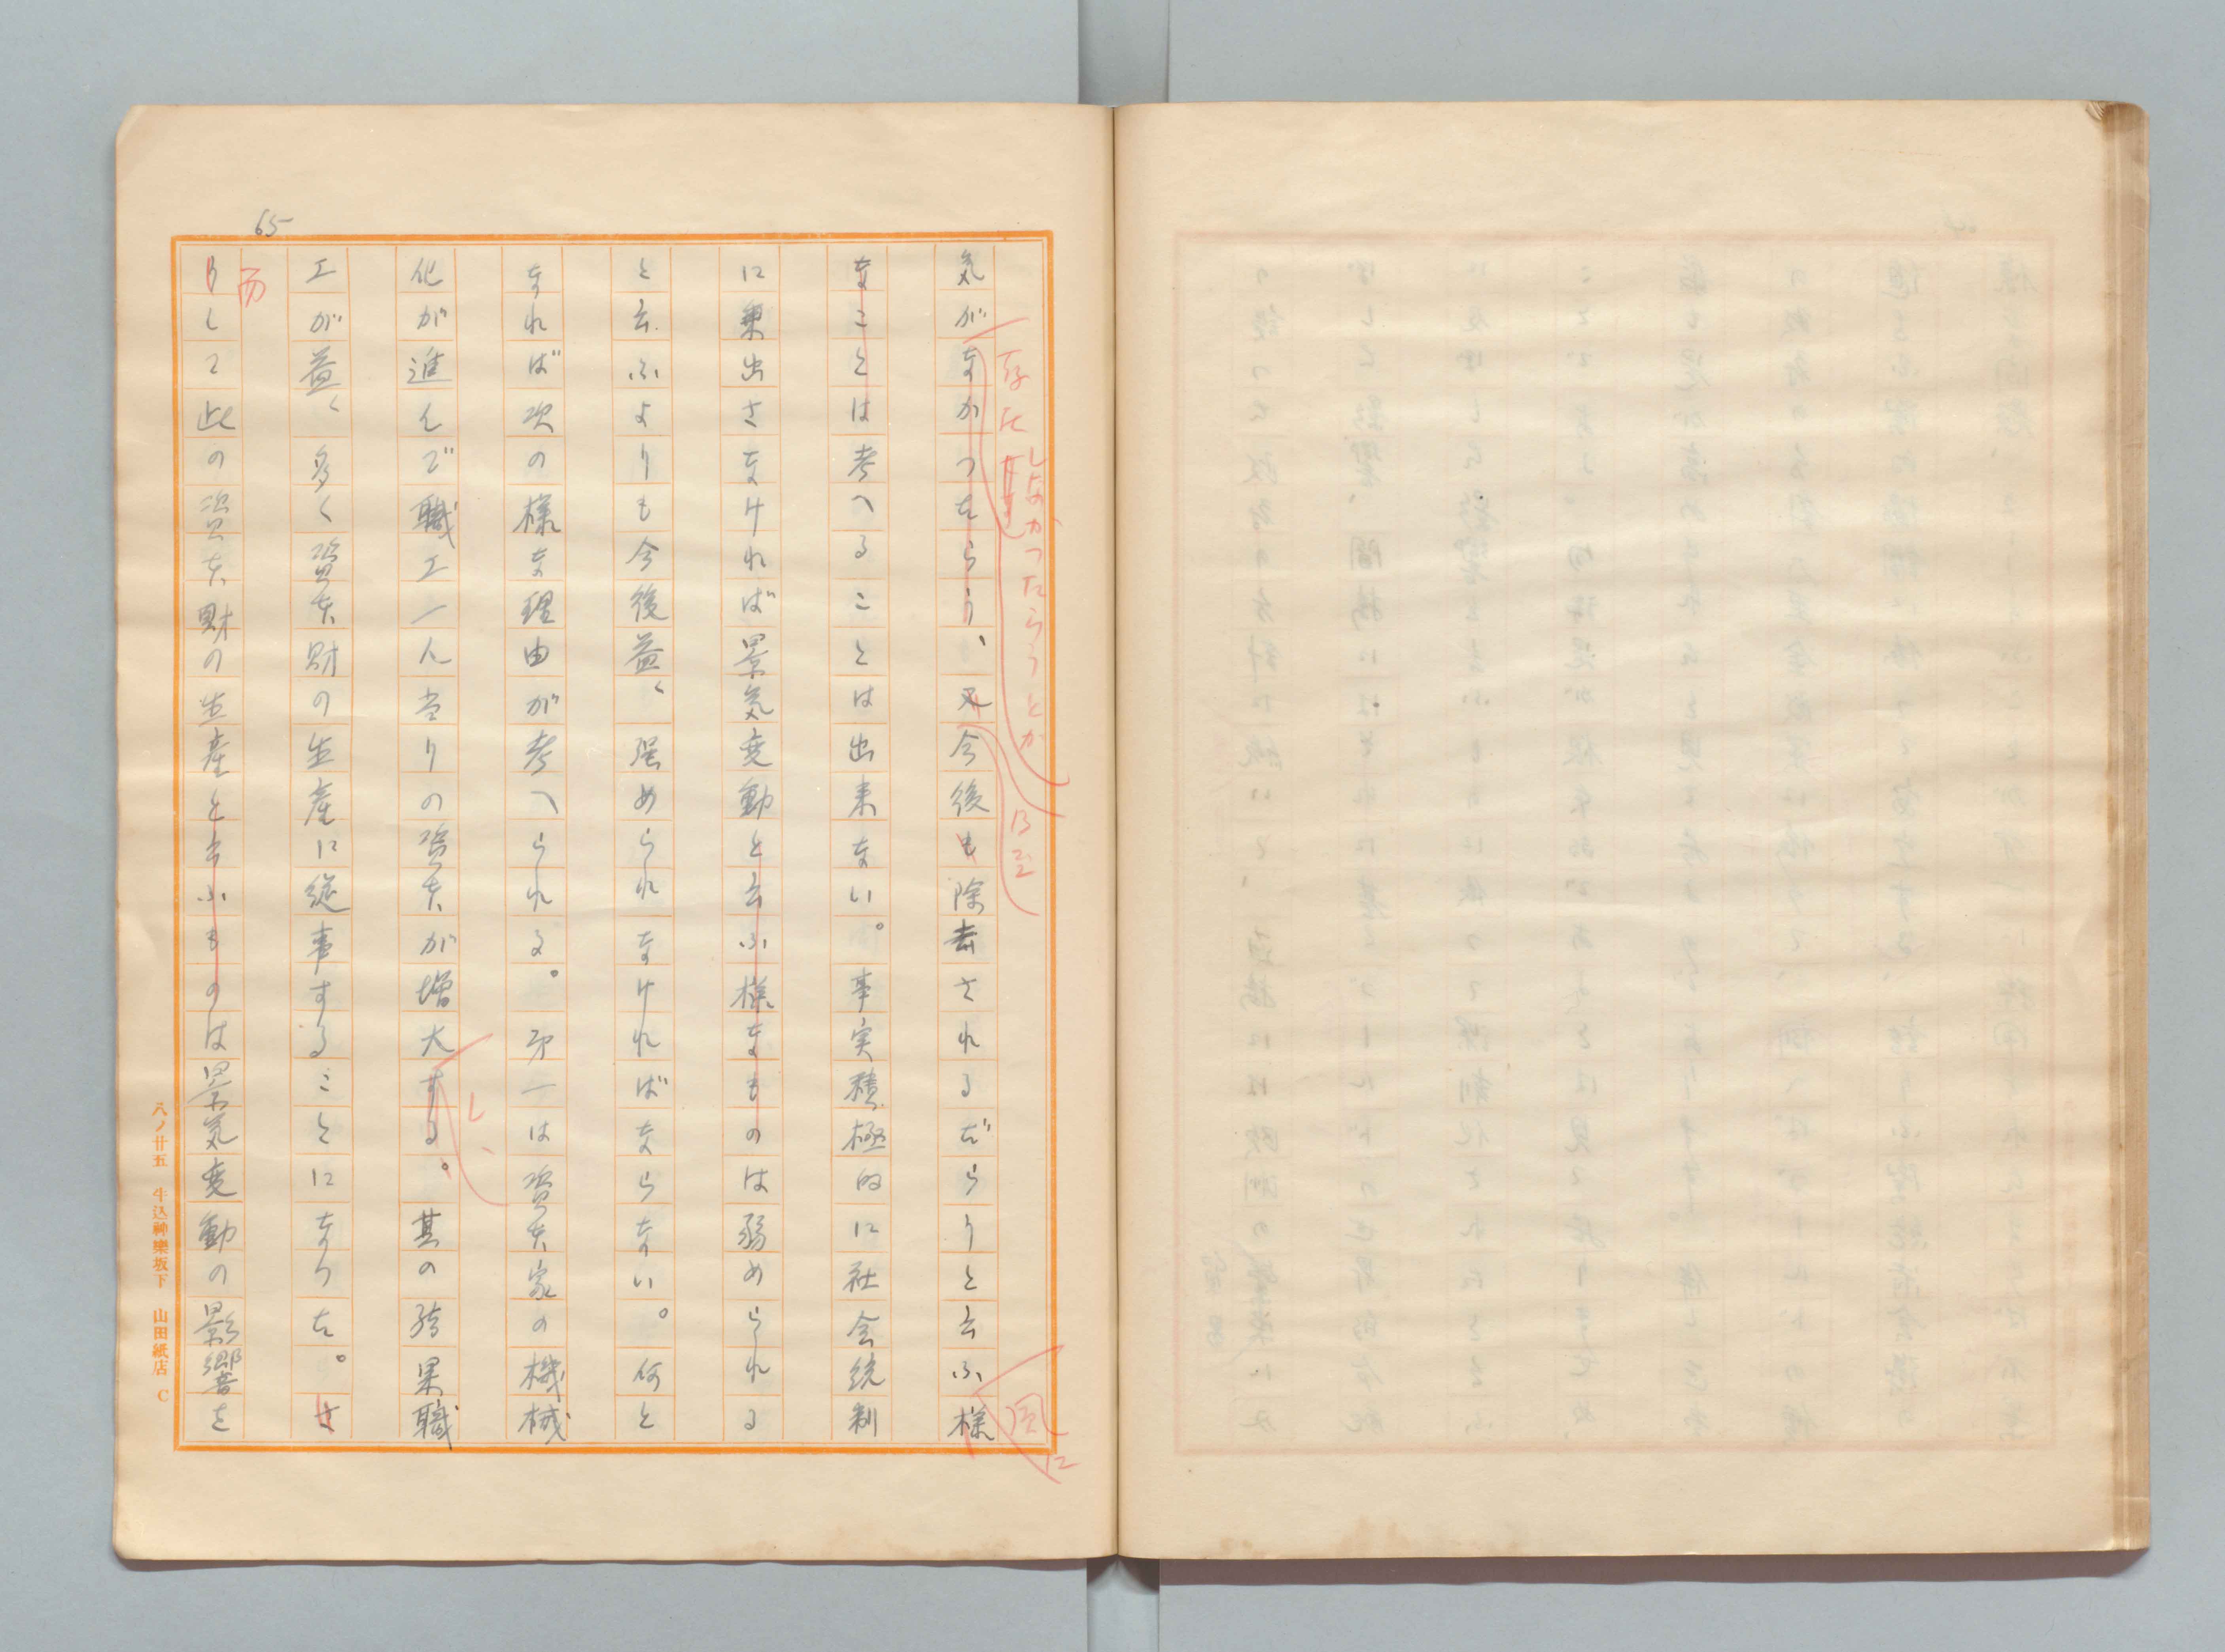 65
気がなかつたらう、又今後も除去されるだらうと云ふ様
存在しなかつたらうとか
は
風に
なことは考へることは出来ない。事実積極的に社会統制
に乗出さなければ景気変動と云ふ様なものは弱められる
と云ふよりも今後益〻強められなければならない。何と
なれば次の様な理由が考へられる。第一は資本家の機械
化が進んで職工一人当りの資本が増大する。其の結果職
し、
工が益〻多く資本財の生産に従事することになつた。さ
而
うして此の資本財の生産と云ふものは景気変動の影響を
八ノ廿五 牛込神樂坂下 山田紙店 C